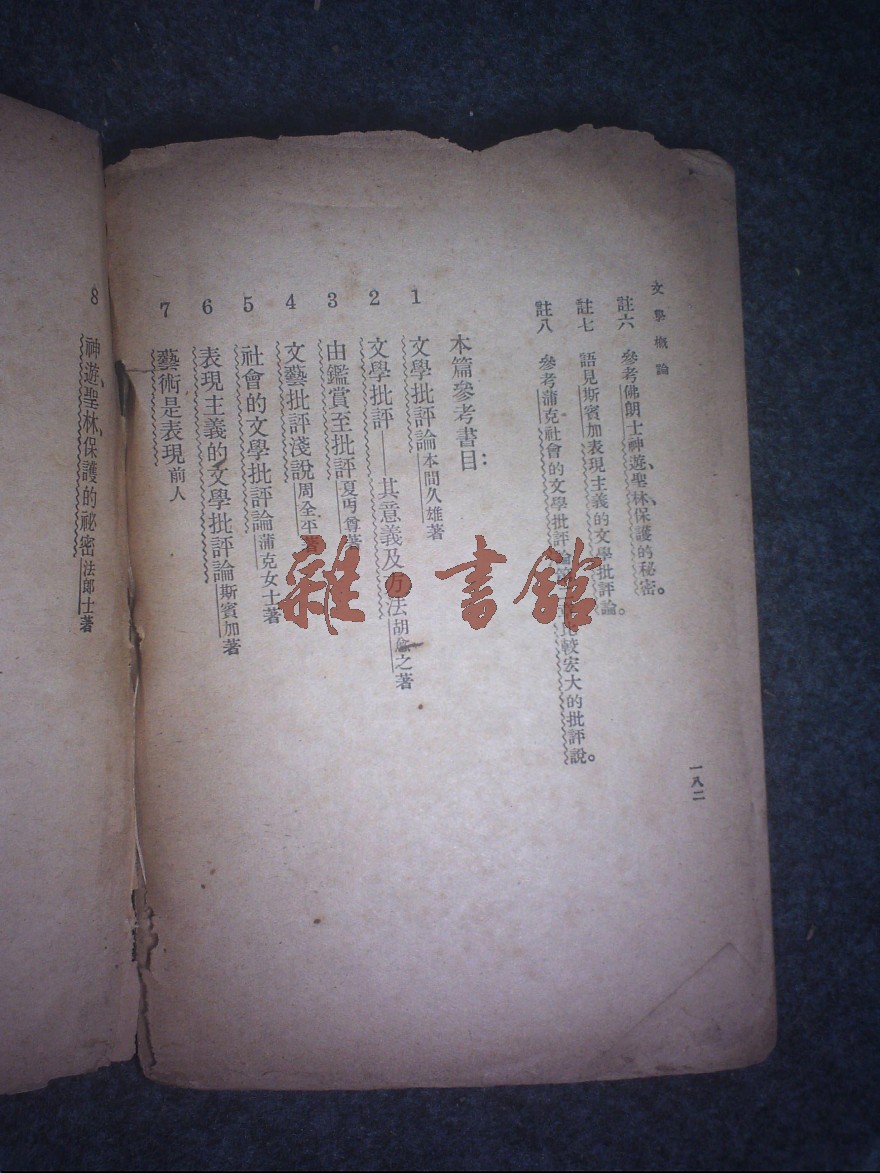 文學概論
註六 參考佛朗士神遊、聖林、保護的秘密。
註七 語見斯賓加表現主義的文學批評論。
註八 參考蒲克社會的文學批評論 比較宏大的批評說。
本篇參考書目：
1 文學批評論本間久雄著
2 文學批評——其意義及方法胡愈之著
3 由鑑賞至批評夏丏尊著
4 文藝批評淺說周全平著
5 社會的文學批評論蒲克女士著
6 表現主義的文學批評論斯賓加著
7 藝術是表現前人
8 神遊、聖林、保護的祕密法郎士著
一八二
雜·書館